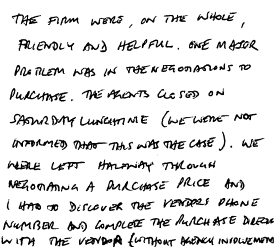 THE FIRM WERE, ON THE WHOLE,
FRIENDLY AND HELPFUL. ONE MAJOR
PROBLEM WAS IN THE NEGOTIATIONS TO
PURCHASE. THE AGENTS CLOSED ON
SATURDAY LUNCHTIME (WE WERE NOT
INFORMED THAT THIS WAS THE CASE). WE
WERE LEFT HALFWAY THROUGH
NEGOTIATING A PURCHASE PRICE AND
I HAD TO DISCOVER THE VENDORS PHONE
NUMBER AND COMPLETE THE PURCHASE DIRECT
WITH THE VENDOR (WITHOUT AGENCY INVOLVEMENT